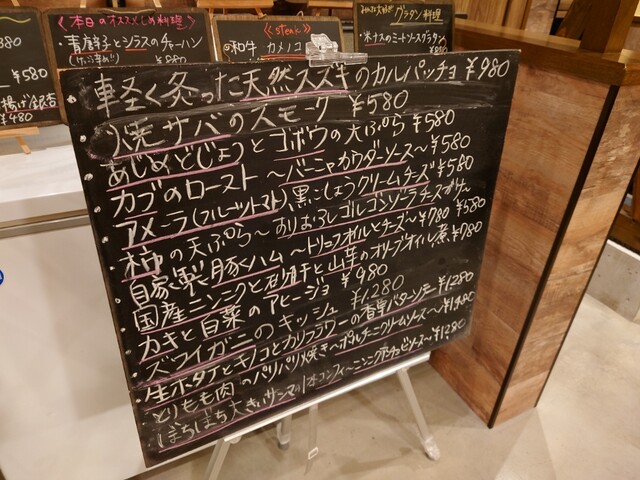 880
~¥580
揚げ銀杏
¥480
《本日のオススメしめ料理》
・青唐辛子とシラスのチャーハン
¥880
《steak》
和牛 カメノコ
グラタン料理
・米ナスのミートソースグラタン
・軽く炙った天然スズキのカルパッチョ ¥980
・焼サバのスモーク ¥580
・あじめどじょうとゴボウの天ぷら ¥580
・カブのロースト ~バーニャカウダーソース~ ¥580
・アメーラ(フルーツトマト)、黒こしょうクリームチーズ ¥580
・柿の天ぷら~おりおろしゴルゴンゾーラチーズ ¥580
・自家製豚ももハム ~トリュフオイルとチーズ~ ¥780
・国産ニンニクと砂肝と山芋のオリーブオイル煮 ¥780
・カキと白菜のアヒージョ ¥980
・ズワイガニのキッシュ ¥1,280
・生ホタテとキノコとカリフラワーの香草バターソテー ¥1,280
・とりもも肉のパリパリ焼き~ポルチーニクリームソース~ ¥1,480
・ぼちぼち大きいサンマ1本コンフィ~ニンニクアンチョビソース~ ¥1,280